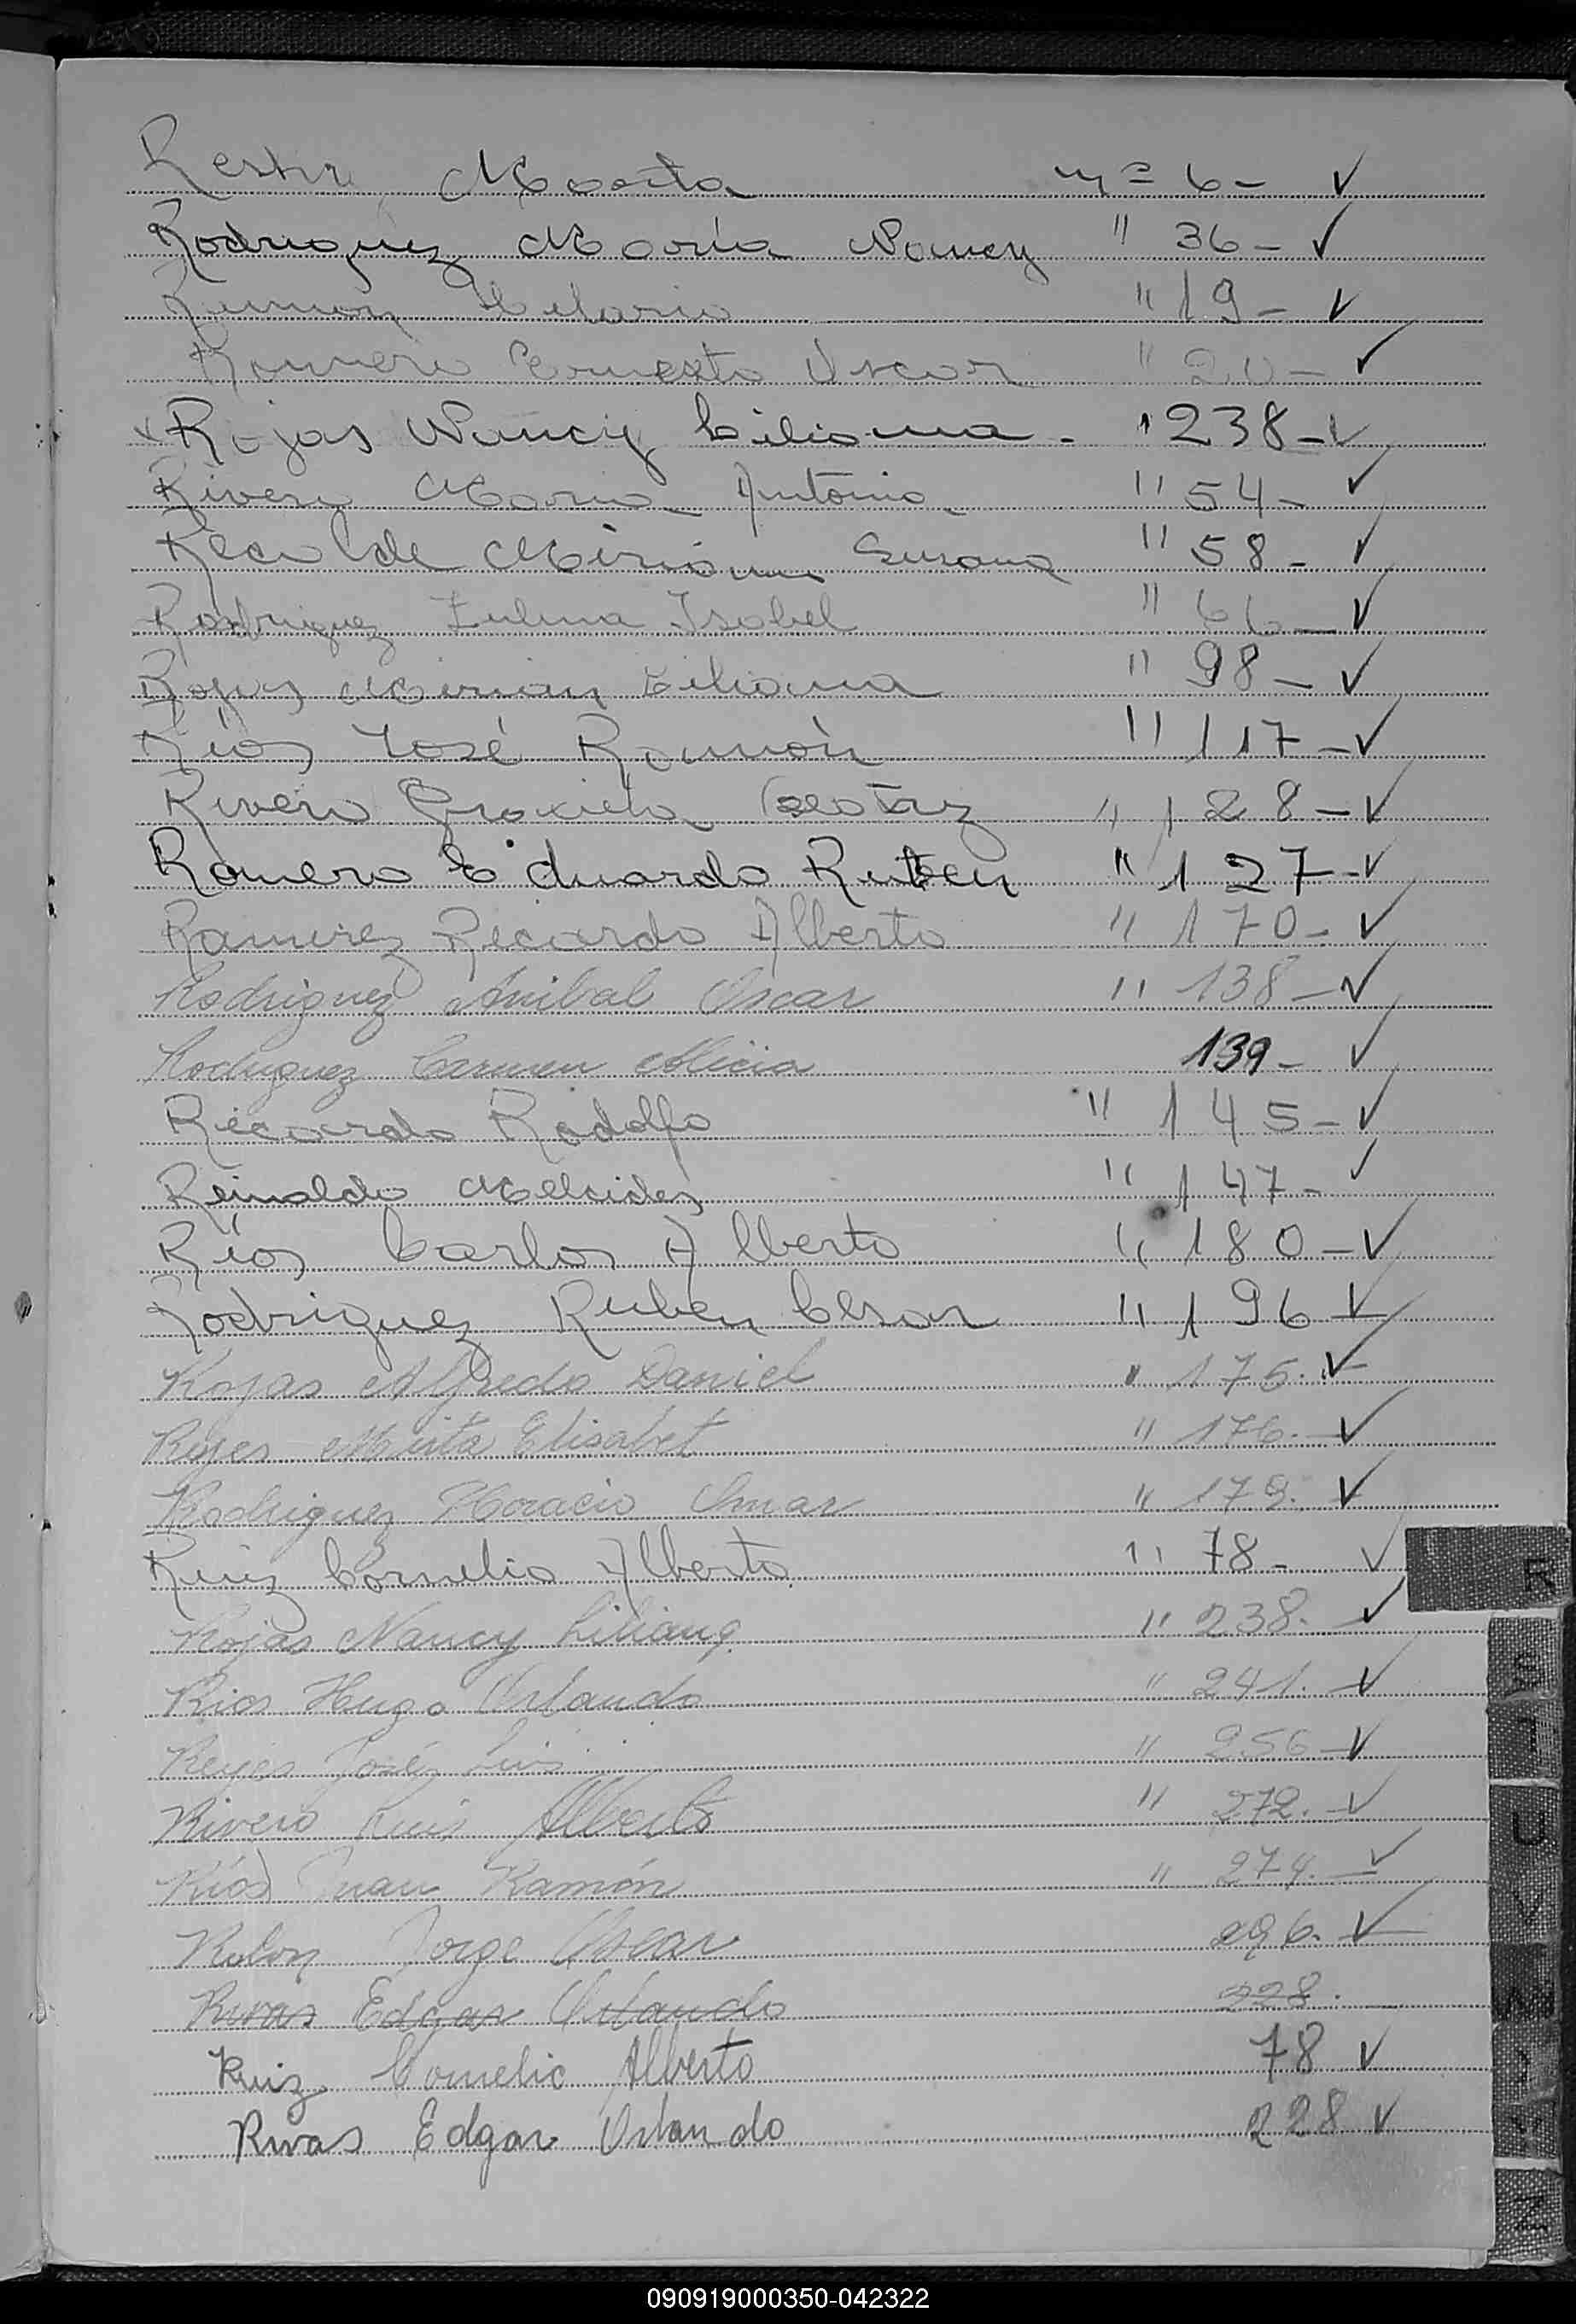 Marta nº 6 - ✓
Rodriguez Maria Nancy " 36 - ✓
Ramon Hilario " 19 - ✓
Romero Ernesto Oscar " 20 - ✓
Rojas Nancy Liliana - " 238 - ✓
Rivero Maria Antonia " 54 - ✓
Recalde Miriam Susana " 58 - ✓
Rodriguez Zulma Isabel " 66 - ✓
Rojas Mirian Liliana " 98 - ✓
Ríos José Ramón " 117 - ✓
Rivero Graciela Beatriz " 128 - ✓
Romero Eduardo Ruben " 127 - ✓
Ramirez Ricardo Alberto " 170 - ✓
Rodriguez Anibal Oscar " 138 - ✓
Rodriguez Carmen Alicia 139 - ✓
Ricardo Rodolfo " 145 - ✓
Reinaldo Melcides " 147 - ✓
Ríos Carlos Alberto " 180 - ✓
Rodriguez Ruben Cesar " 196 ✓
Rojas Alfredo Daniel " 175. ✓
Reyes Mirta Elisabet " 176. ✓
Rodriguez Horacio Omar " 179. ✓
Ruiz Cornelio Alberto " 78 - ✓
Rojas Nancy Liliana " 238. ✓
Rios Hugo Orlando " 241. ✓
Reyes José Luis " 256 ✓
Rivero Luis Alberto " 272. ✓
Ríos Juan Ramón " 274. ✓
Rolon Jorge Oscar 296. ✓
Rivas Edgar Orlando 228.
Ruiz Cornelio Alberto 78 ✓
Rivas Edgar Orlando 228 ✓
R
S
T
U
V
W
Z
090919000350-042322